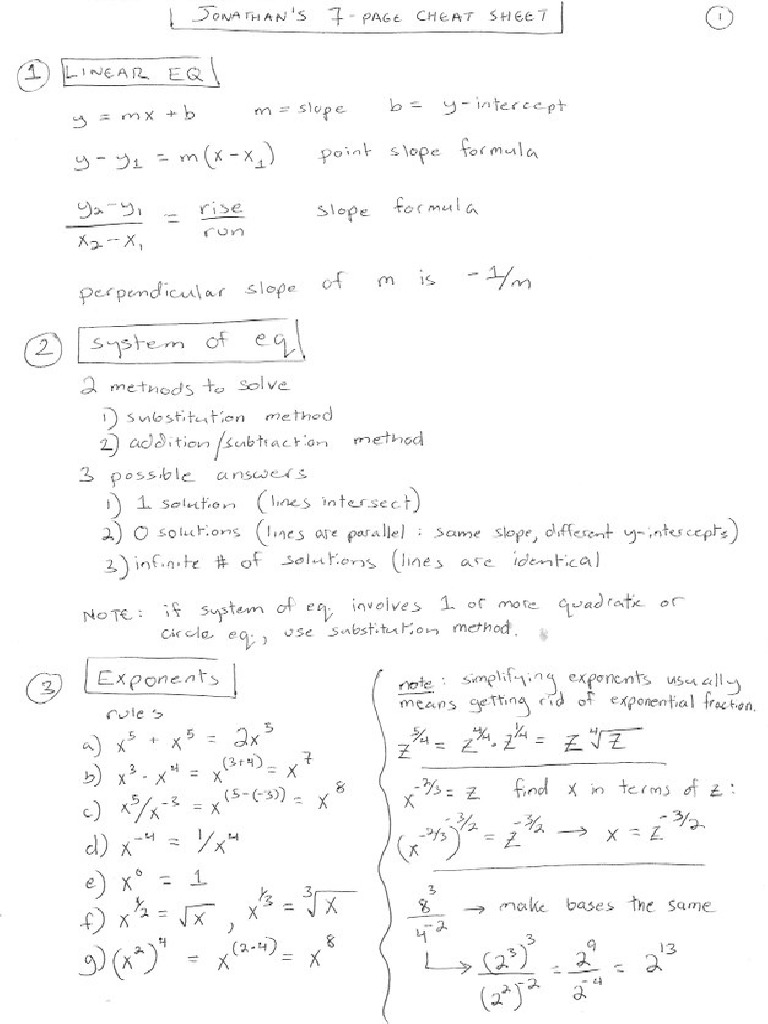 JONATHAN'S 7-PAGE CHEAT SHEET
1
1 LINEAR EQ
y = mx + b m = slope b = y-intercept
y - y₁ = m(x - x₁) point slope formula
(y₂-y₁)/(x₂-x₁) = rise/run slope formula
perpendicular slope of m is -1/m
2 system of eq
2 methods to solve
1) substitution method
2) addition/subtraction method
3 possible answers
1) 1 solution (lines intersect)
2) 0 solutions (lines are parallel : same slope, different y-intercepts)
3) infinite # of solutions (lines are identical
NOTE: if system of eq. involves 1 or more quadratic or
circle eq., use substitution method.
3 Exponents
rules
a) x⁵ + x⁵ = 2x⁵
b) x³ · x⁴ = x⁽³⁺⁴⁾ = x⁷
c) x⁵/x⁻³ = x^(5-(-3)) = x⁸
d) x⁻⁴ = 1/x⁴
e) x⁰ = 1
f) x^(1/2) = √x , x^(1/3) = ³√x
g) (x²)⁴ = x^(2·4) = x⁸
note: simplifying exponents usually
means getting rid of exponential fraction.
z^(5/4) = z^(4/4) · z^(1/4) = z ⁴√z
x^(-2/3) = z find x in terms of z :
(x^(-2/3))^(-3/2) = z^(-3/2) → x = z^(-3/2)
8³/4⁻² → make bases the same
↳ (2³)³/(2²)⁻² = 2⁹/2⁻⁴ = 2¹³